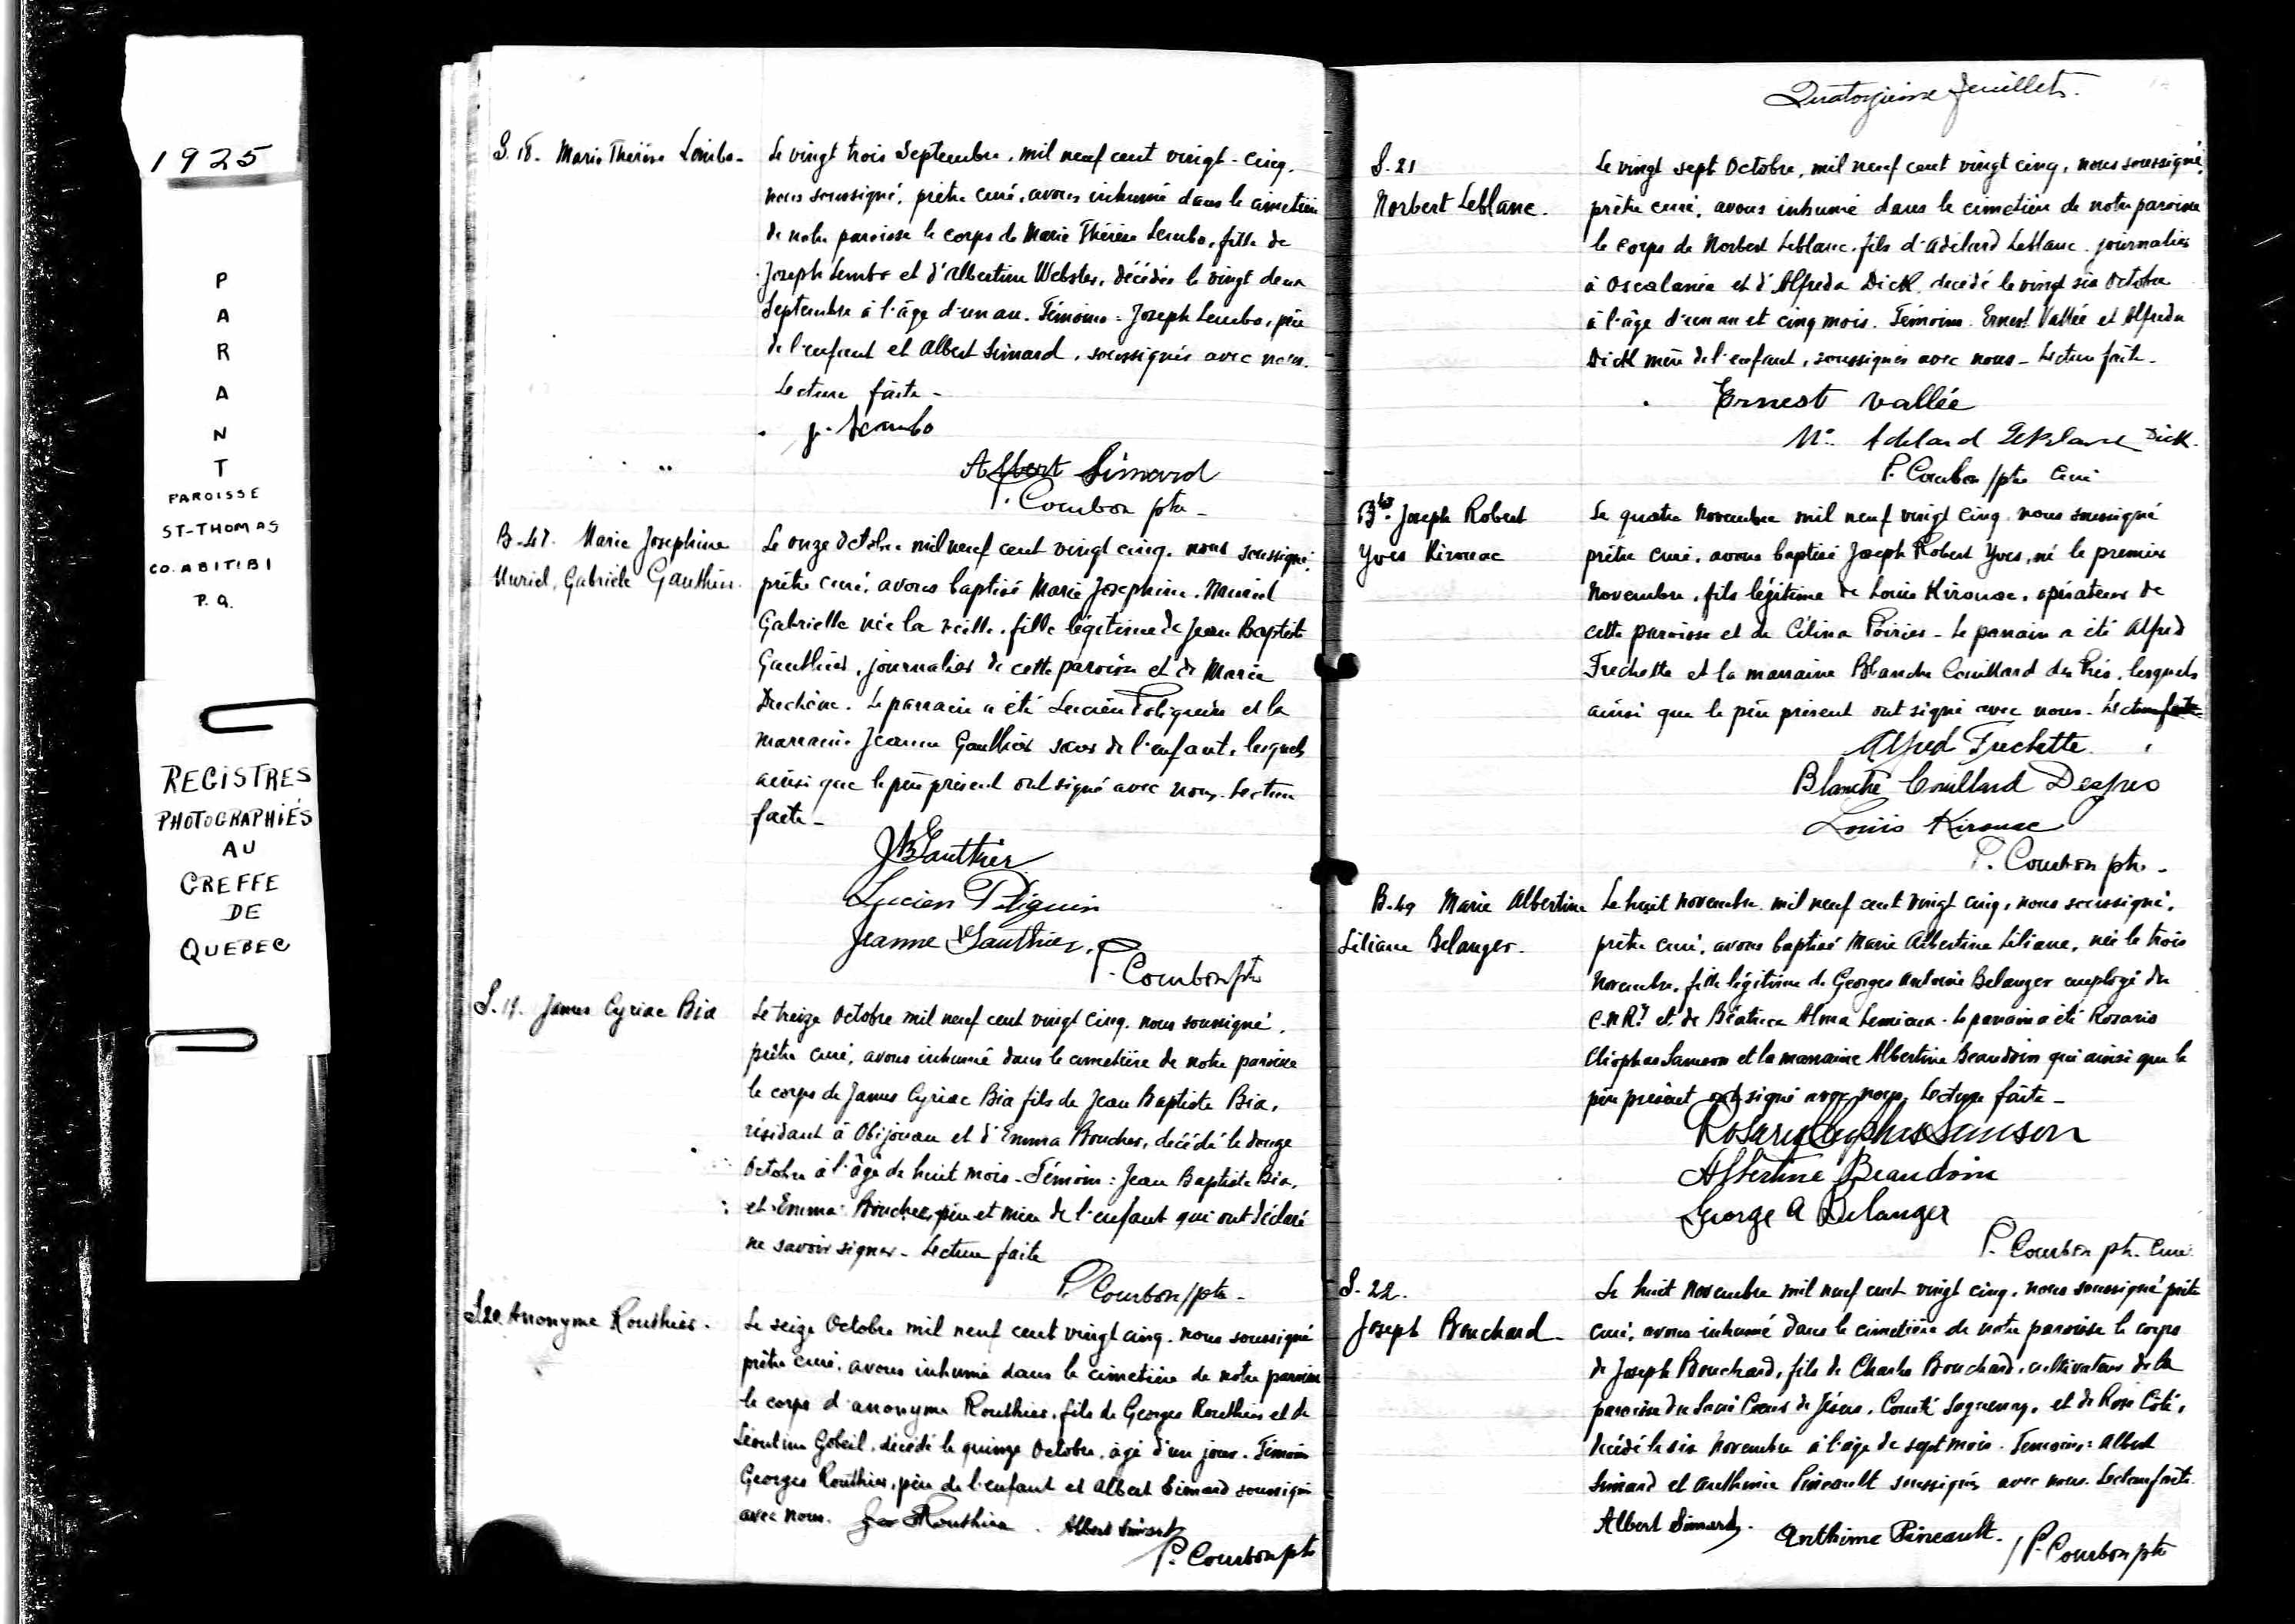 1925
P
A
R
A
N
T
PAROISSE
ST-THOMAS
CO. ABITIBI
P.Q.
REGISTRES
PHOTOGRAPHIÉS
AU
GREFFE
DE
QUEBEC
S. 18. Marie Thérèse Lembo.
Le vingt trois Septembre, mil neuf cent vingt-cinq.
nous soussigné, prêtre curé, avons inhumé dans le cimetière
de notre paroisse le corps de Marie Thérèse Lembo, fille de
Joseph Lembo et d'Albertine Webster, décédée le vingt deux
Septembre à l'âge d'un an. Témoins: Joseph Lembo, père
de l'enfant et Albert Simard, soussignés avec nous.
Lecture faite -
J. Lembo
Albert Simard
P. Courbon ptre -
B-47. Marie Josephine
Muriel, Gabriele Gauthier.
Le onze Octobre mil neuf cent vingt cinq. nous soussigné,
prêtre curé, avons baptisé Marie Josephine, Muriel
Gabrielle née la veille, fille légitime de Jean Baptiste
Gauthier, journalier de cette paroisse et de Maria
Duchène. Le parrain a été Lucien Poliquin et la
marraine Jeanne Gauthier sœur de l'enfant, lesquels
ainsi que le père présent ont signé avec nous. Lecture
faite -
JB Gauthier
Lucien Poliquin
Jeanne Gauthier.
P. Courbon ptre
S. 19. James Cyriac Bia
Le treize Octobre mil neuf cent vingt cinq. nous soussigné,
prêtre curé, avons inhumé dans le cimetière de notre paroisse
le corps de James Cyriac Bia fils de Jean Baptiste Bia,
résidant à Obijouan et d'Emma Boucher, décédé le douze
Octobre à l'âge de huit mois - Témoins: Jean Baptiste Bia,
et Emma Boucher, père et mère de l'enfant qui ont déclaré
ne savoir signer - Lecture faite
P. Courbon ptre -
S. 20. Anonyme Routhier.
Le seize Octobre mil neuf cent vingt cinq. nous soussigné
prêtre curé, avons inhumé dans le cimetière de notre paroisse
le corps d'anonyme Routhier, fils de Georges Routhier et de
Léontine Gobeil, décédé le quinze Octobre, âgé d'un jour. Témoins
Georges Routhier, père de l'enfant et Albert Simard soussignés
avec nous. Geo Routhier. Albert Simard
P. Courbon ptre
Quatorzième feuillet.
S. 21
Norbert Leblanc.
Le vingt sept Octobre, mil neuf cent vingt cinq, nous soussigné,
prêtre curé, avons inhumé dans le cimetière de notre paroisse
le corps de Norbert Leblanc, fils d'Adélard Leblanc, journalier
à Oscalanéa et d'Alfreda Dick, décédé le vingt six Octobre
à l'âge d'un an et cinq mois. Témoins. Ernest Vallée et Alfreda
Dick mère de l'enfant, soussignés avec nous - Lecture faite -
Ernest Vallée
Adelard Leblanc Dick.
P. Courbon ptre Curé
B 48. Joseph Robert
Yves Kirouac
Le quatre Novembre mil neuf vingt cinq nous soussigné
prêtre curé, avons baptisé Joseph Robert Yves, né le premier
Novembre, fils légitime de Louis Kirouac, opérateur de
cette paroisse et de Célina Poirier - Le parrain a été Alfred
Frechette et la marraine Blanche Couillard des Prés, lesquels
ainsi que le père présent ont signé avec nous - Lecture faite
Alfred Frechette
Blanche Couillard Després
Louis Kirouac
P. Courbon ptre -
B-49 Marie Albertine
Liliane Belanger.
Le huit novembre mil neuf cent vingt cinq, nous soussigné,
prêtre curé, avons baptisé Marie Albertine Liliane, née le trois
Novembre, fille légitime de Georges Antoine Belanger employé du
C.N.Ry et de Béatrice Alma Lemieux. Le parrain a été Rosario
Cléophas Samson et la marraine Albertine Beaudoin qui ainsi que le
père présent ont signé avec nous. Lecture faite -
Rosario Cléophas Samson
Albertine Beaudoin
George A Belanger
P. Courbon ptre. Curé
S. 22.
Joseph Bouchard
Le huit Novembre mil neuf cent vingt cinq, nous soussigné prêtre
curé, avons inhumé dans le cimetière de notre paroisse le corps
de Joseph Bouchard, fils de Charles Bouchard, cultivateur de la
paroisse du Sacré Cœur de Jésus, Comté Saguenay, et de Rose Coté,
décédé le six Novembre à l'âge de sept mois. Temoins: Albert
Simard et Anthime Pineault soussignés avec nous. Lecture faite.
Albert Simard. Anthime Pineault. P. Courbon ptre